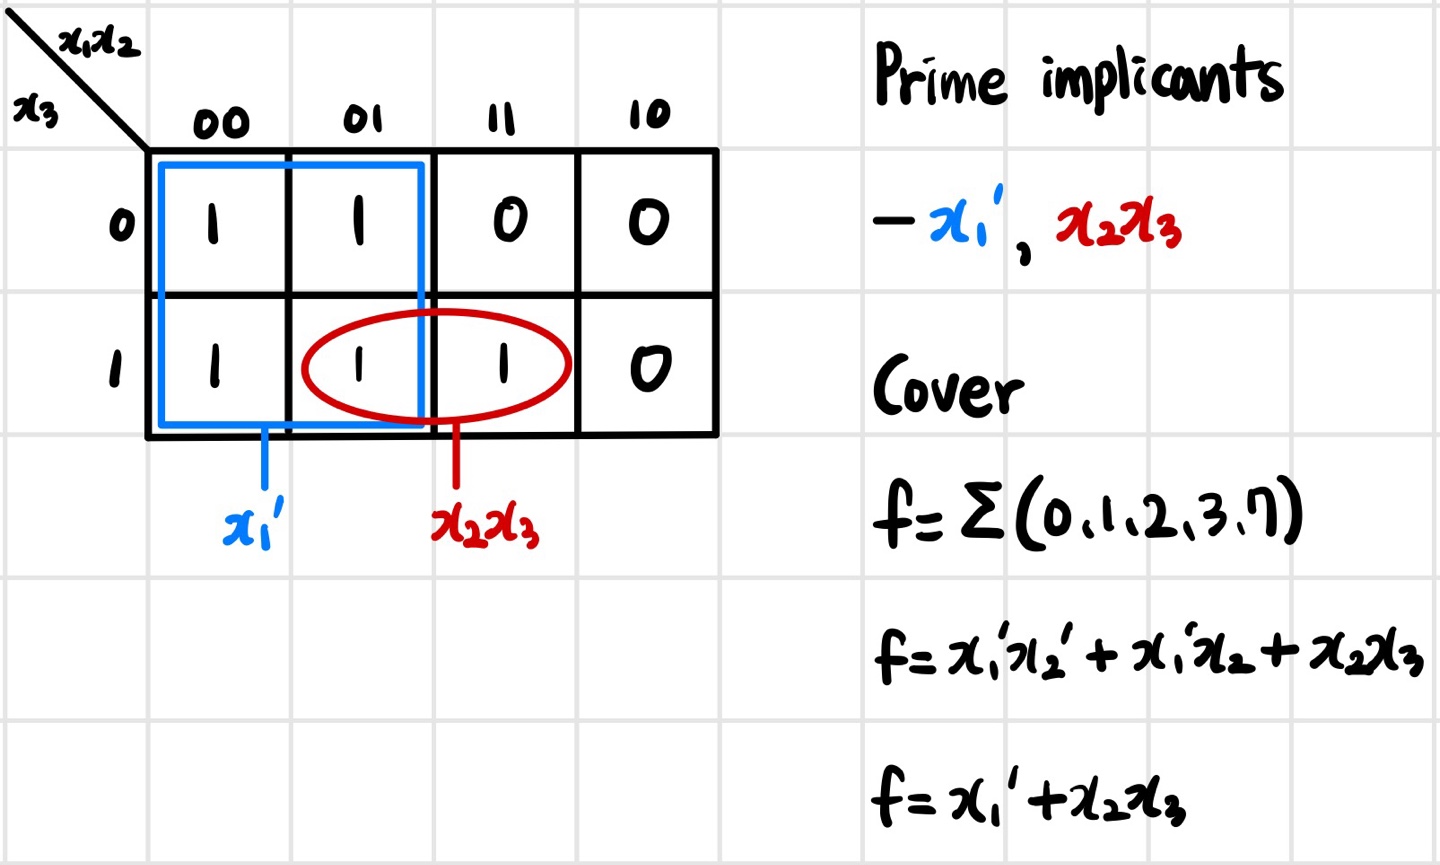 x₁x₂
x₃
00 01 11 10
0 1 1 0 0
1 1 1 1 0
x₁′ x₂x₃
Prime implicants
– x₁′, x₂x₃
Cover
f=Σ(0,1,2,3,7)
f=x₁′x₂′+x₁′x₂+x₂x₃
f=x₁′+x₂x₃